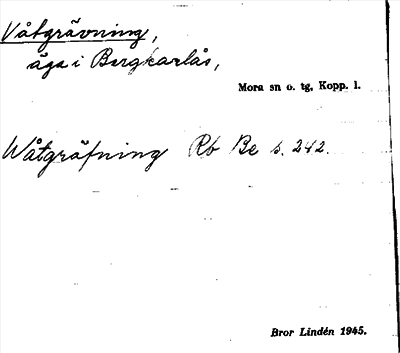 Våtgrävning,
äga i Bergkarlås,
Mora sn o. tg, Kopp. l.
Wåtgräfning Rb Be s. 242.
Bror Lindén 1945.